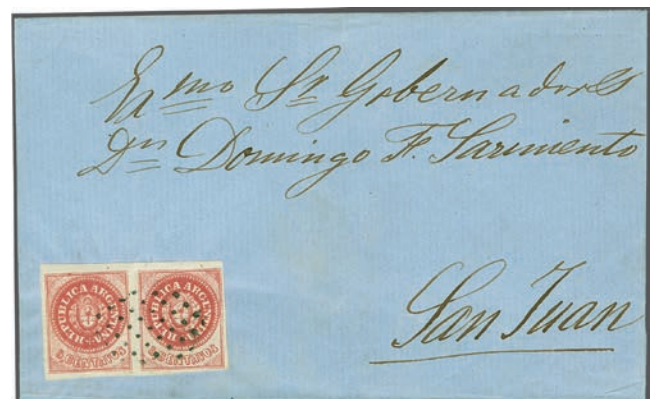 Exmo Sr Gobernador
Dn Domingo F. Sarmiento
San Juan
REPUBLICA ARGENTINA
5 CENTAVOS
REPUBLICA ARGENTINA
5 CENTAVOS